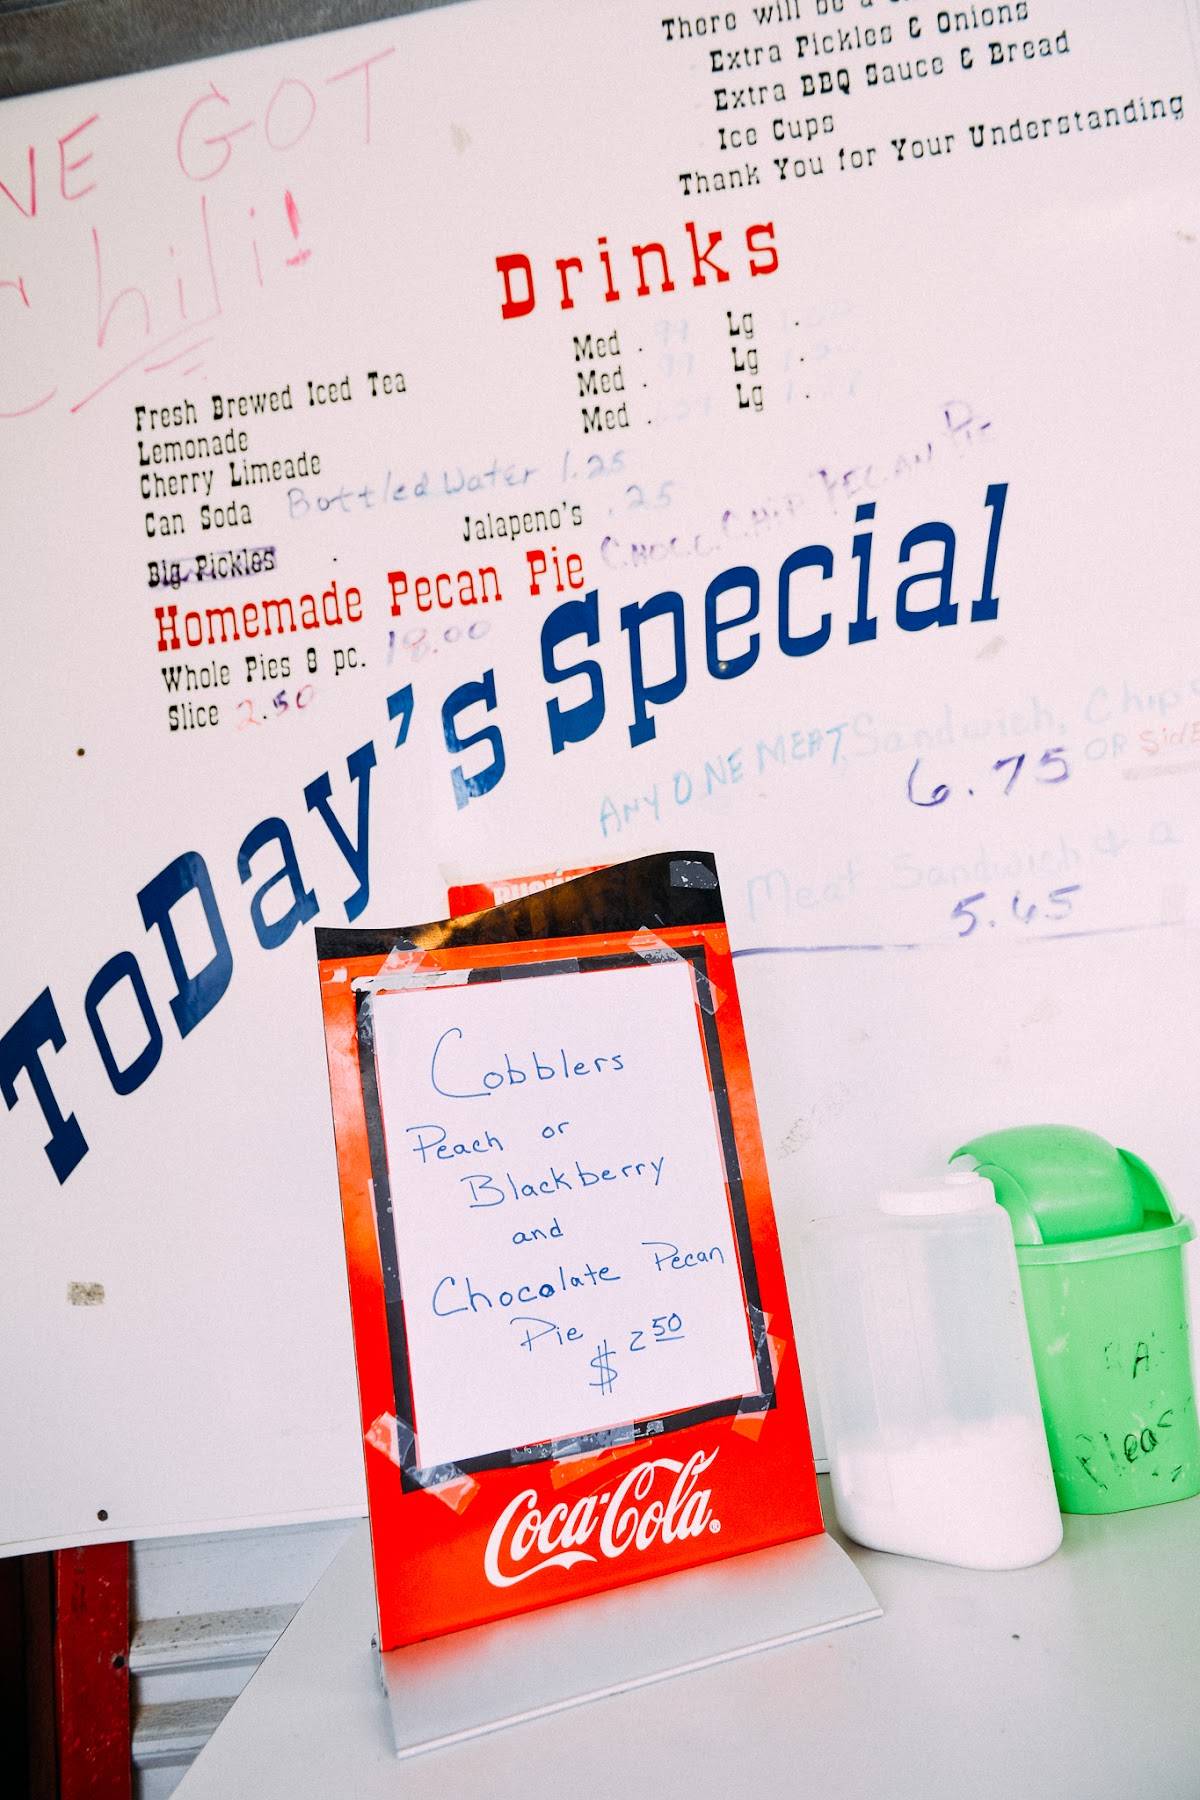 There will be a
Extra Pickles & Onions
Extra BBQ Sauce & Bread
Ice Cups
Thank You for Your Understanding
VE GOT
Chili!
Drinks
Fresh Brewed Iced Tea Med . 99 Lg .
Lemonade Med . 99 Lg .
Cherry Limeade Med . Lg .
Can Soda Bottled Water 1.25
Big Pickles . Jalapeno's .25
Homemade Pecan Pie CHOC. CHIP PECAN Pie
Whole Pies 8 pc. 18.00
Slice 2.50
ToDay's Special
ANY ONE MEAT Sandwich, Chips
6.75 OR SIDE
Meat Sandwich & a
5.45
Cobblers
Peach or
Blackberry
and
Chocolate Pecan
Pie
$ 2 50
Coca-Cola
Pleas